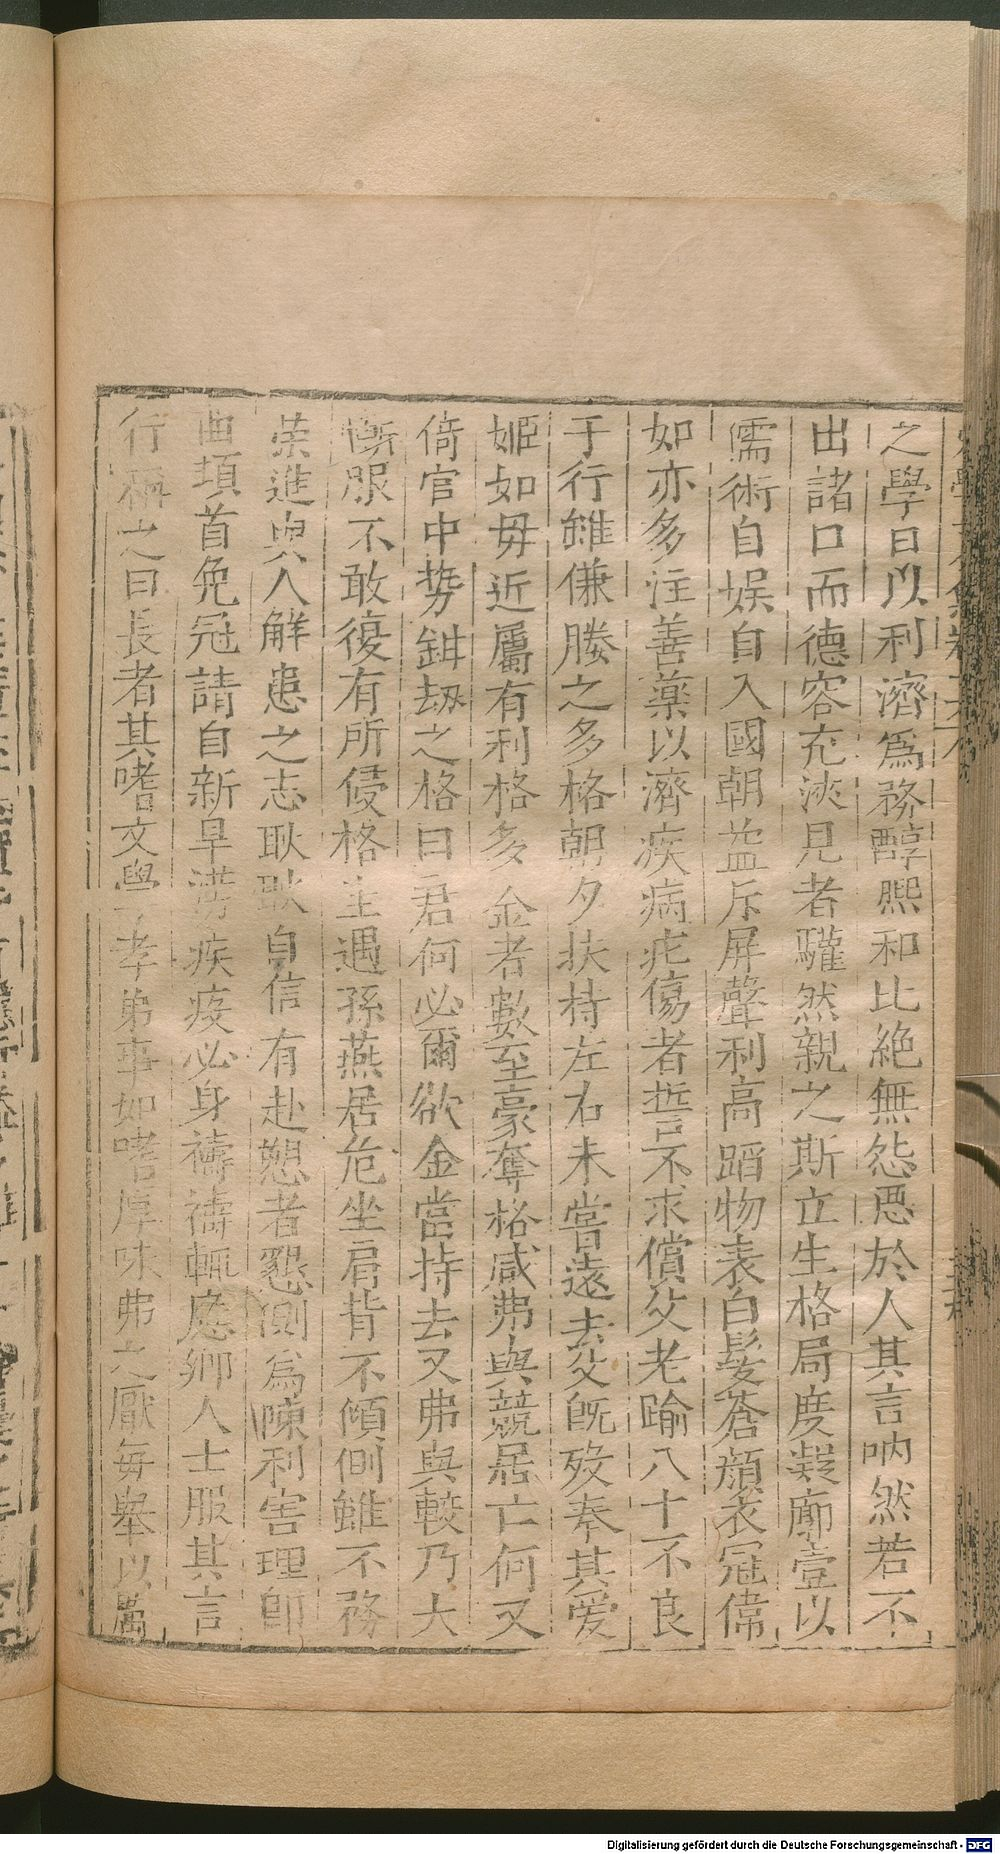 之學日以利濟為務醇熙和比絶無怨惡於人其言吶然若不
出諸口而德容充浹見者驩然親之斯立生格局度凝廓壹以
儒術自娱自入國朝益斥屏聲利高蹈物表白髮蒼顔衣冠偉
如亦多注善藥以濟疾病疕傷者誓不求償父老踰八十不良
于行雖傔媵之多格朝夕扶持左右未嘗遠去父旣歿奉其愛
姬如毋近屬有利格多金者數至豪奪格咸弗與競居亡何又
倚官中勢鉗刼之格曰君何必爾欲金當持去又弗與較乃大
慚服不敢復有所侵格主遇孫燕居危坐肩背不傾側雖不務
榮進與人解患之志耿耿自信有赴愬者懇惻為陳利害理卽
曲頓首免冠請自新旱澇疾疫必身禱禱輒應鄉人士服其言
行稱之曰長者其嗜文學孝弟事如嗜厚味弗之厭毎舉以薦
Digitalisierung gefördert durch die Deutsche Forschungsgemeinschaft - DFG